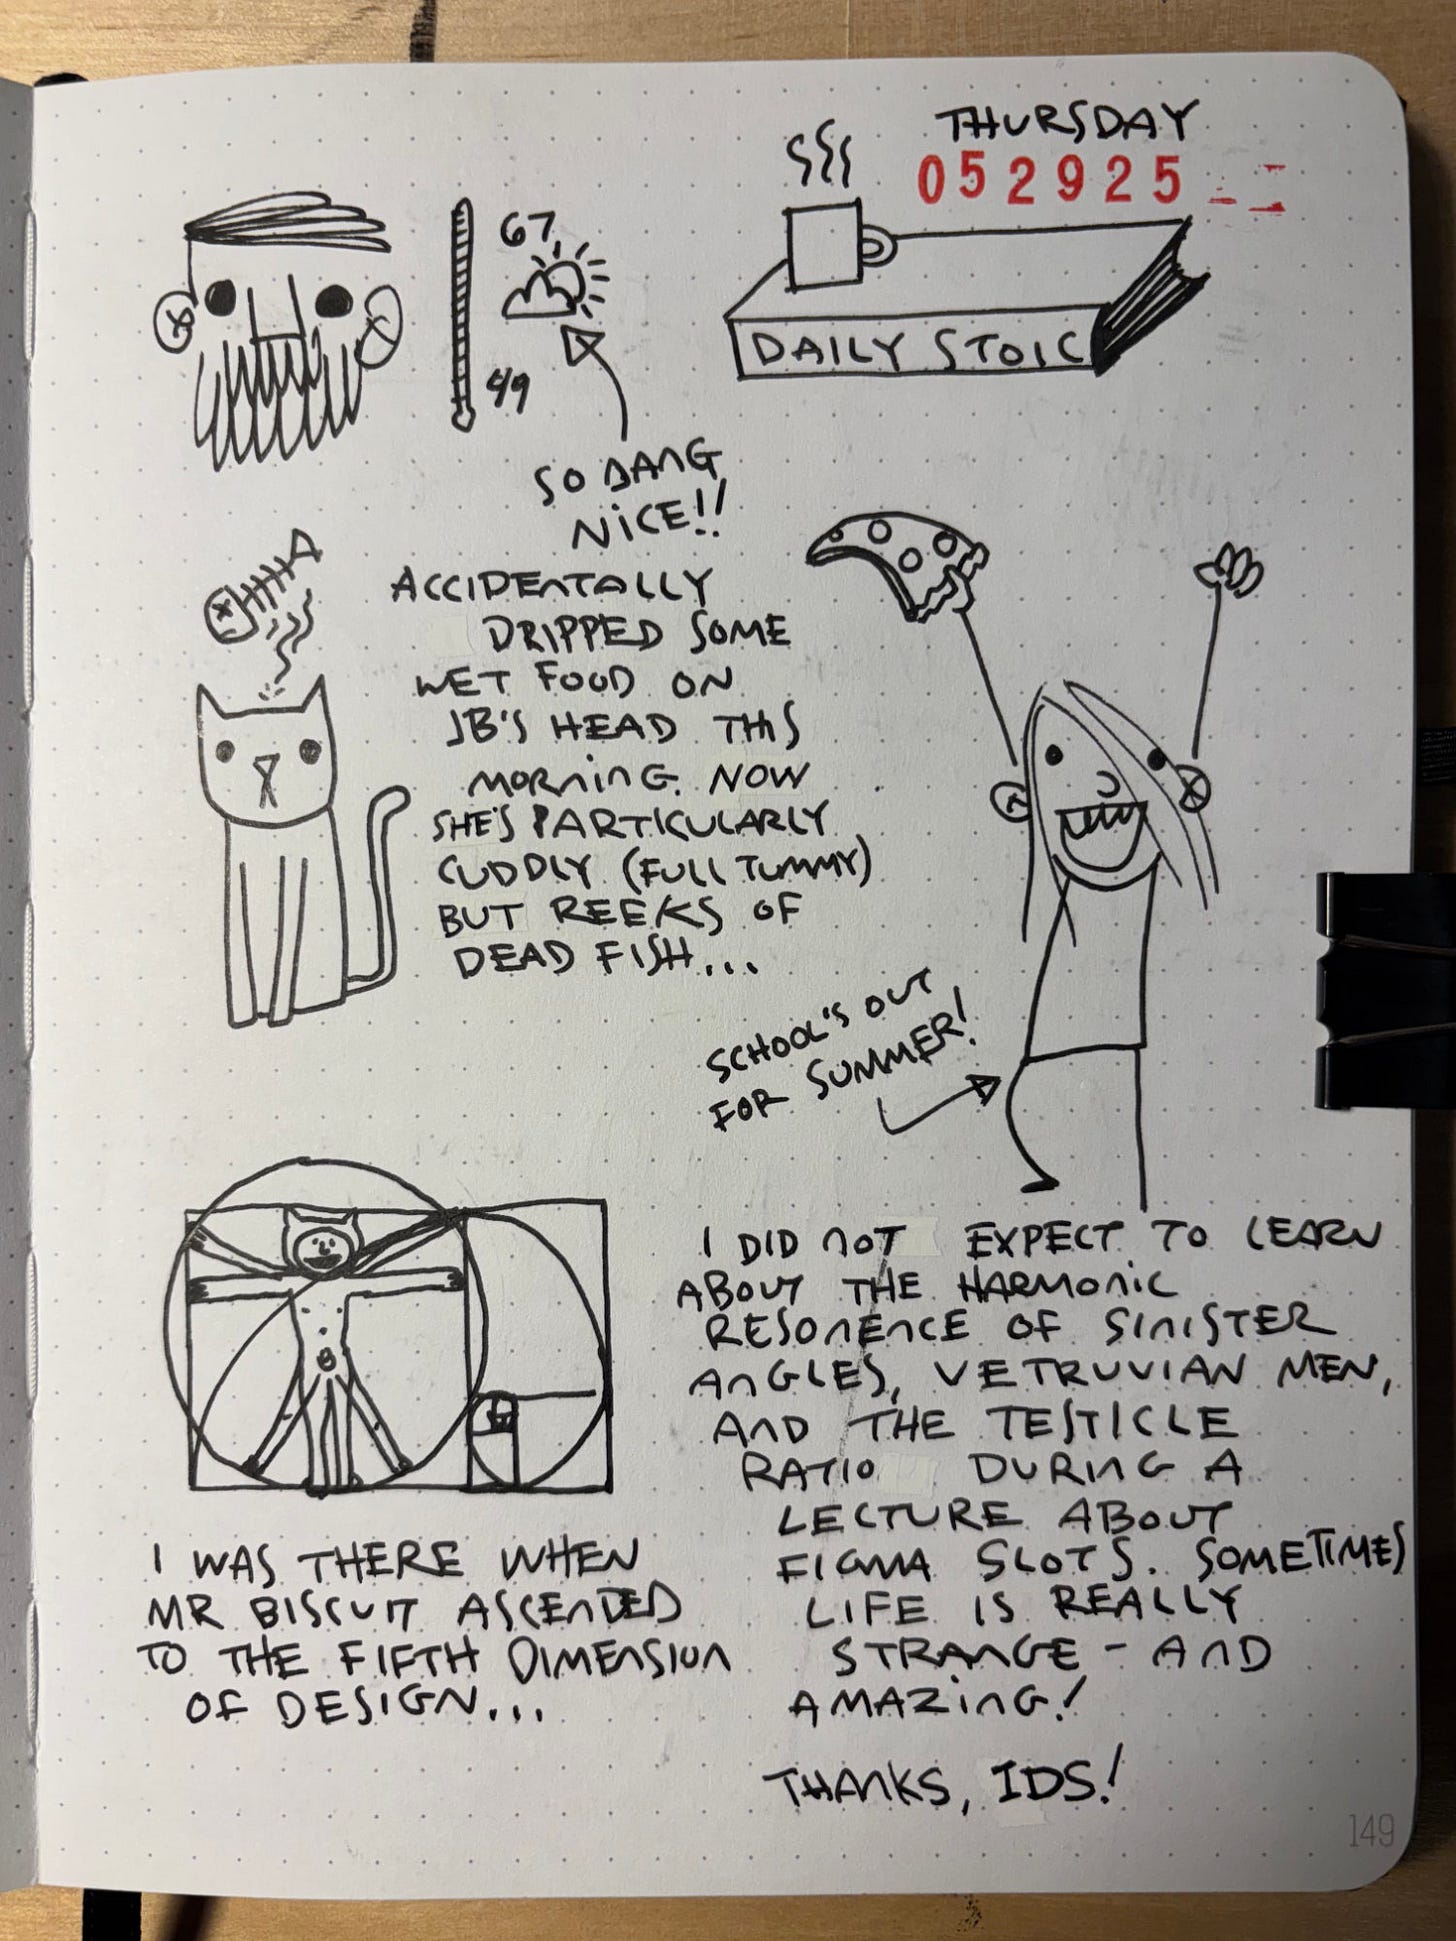 THURSDAY
052925
67
49
DAILY STOIC
SO DANG
NICE!!
ACCIDENTALLY
DRIPPED SOME
WET FOOD ON
JB'S HEAD THIS
MORNING. NOW
SHE'S PARTICULARLY
CUDDLY (FULL TUMMY)
BUT REEKS OF
DEAD FISH...
SCHOOL'S OUT
FOR SUMMER!
I WAS THERE WHEN
MR BISCUIT ASCENDED
TO THE FIFTH DIMENSION
OF DESIGN...
I DID NOT EXPECT TO LEARN
ABOUT THE HARMONIC
RESONENCE OF SINISTER
ANGLES, VETRUVIAN MEN,
AND THE TESTICLE
RATIO DURING A
LECTURE ABOUT
FIGMA SLOTS. SOMETIMES
LIFE IS REALLY
STRANGE - AND
AMAZING!
THANKS, IDS!
149